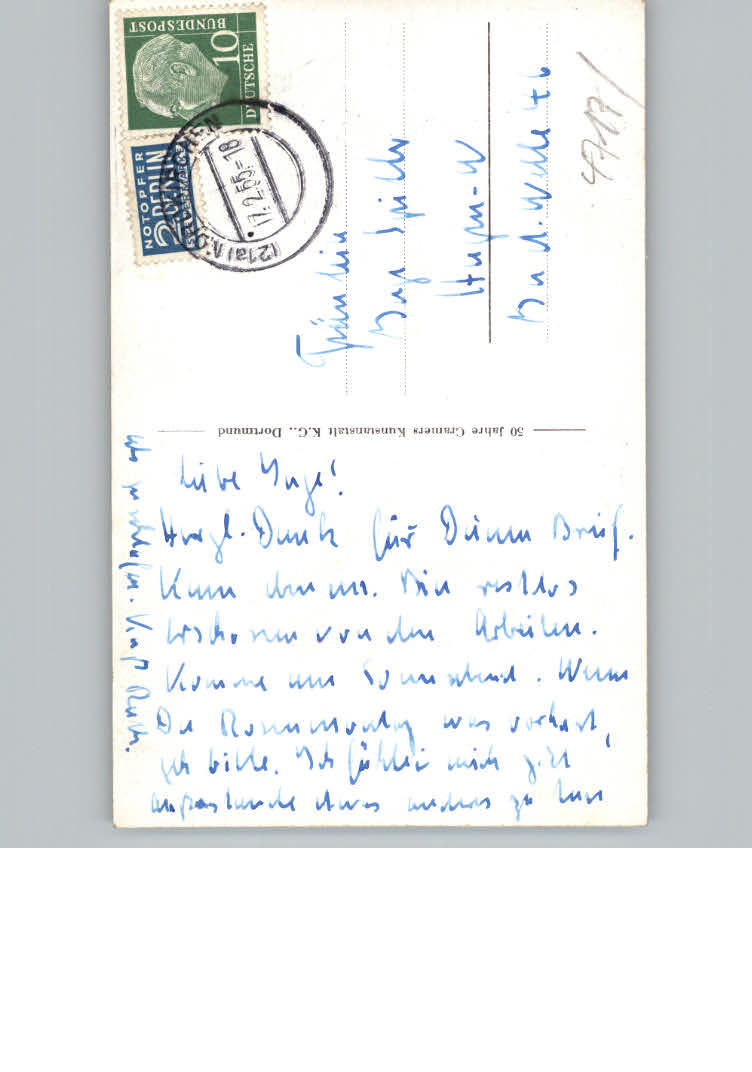 DEUTSCHE
BUNDESPOST
10
NOTOPFER
2 BERLIN
STEUERMARKE
(21a)
17.2.55.-18
4717/
Fräulein
Inge
Hagen-W
50 Jahre Cramers Kunstanstalt K.G., Dortmund
Liebe Inge!
Herzl. Dank für Deinen Brief.
Bin restlos
erschossen von den Arbeiten.
Komme am Sonnabend. Wenn
Du Rosenmontag was vorhast,
geh bitte. Ich fühle mich nicht
etwas anderes zu tun
als zu schlafen. Ruth.